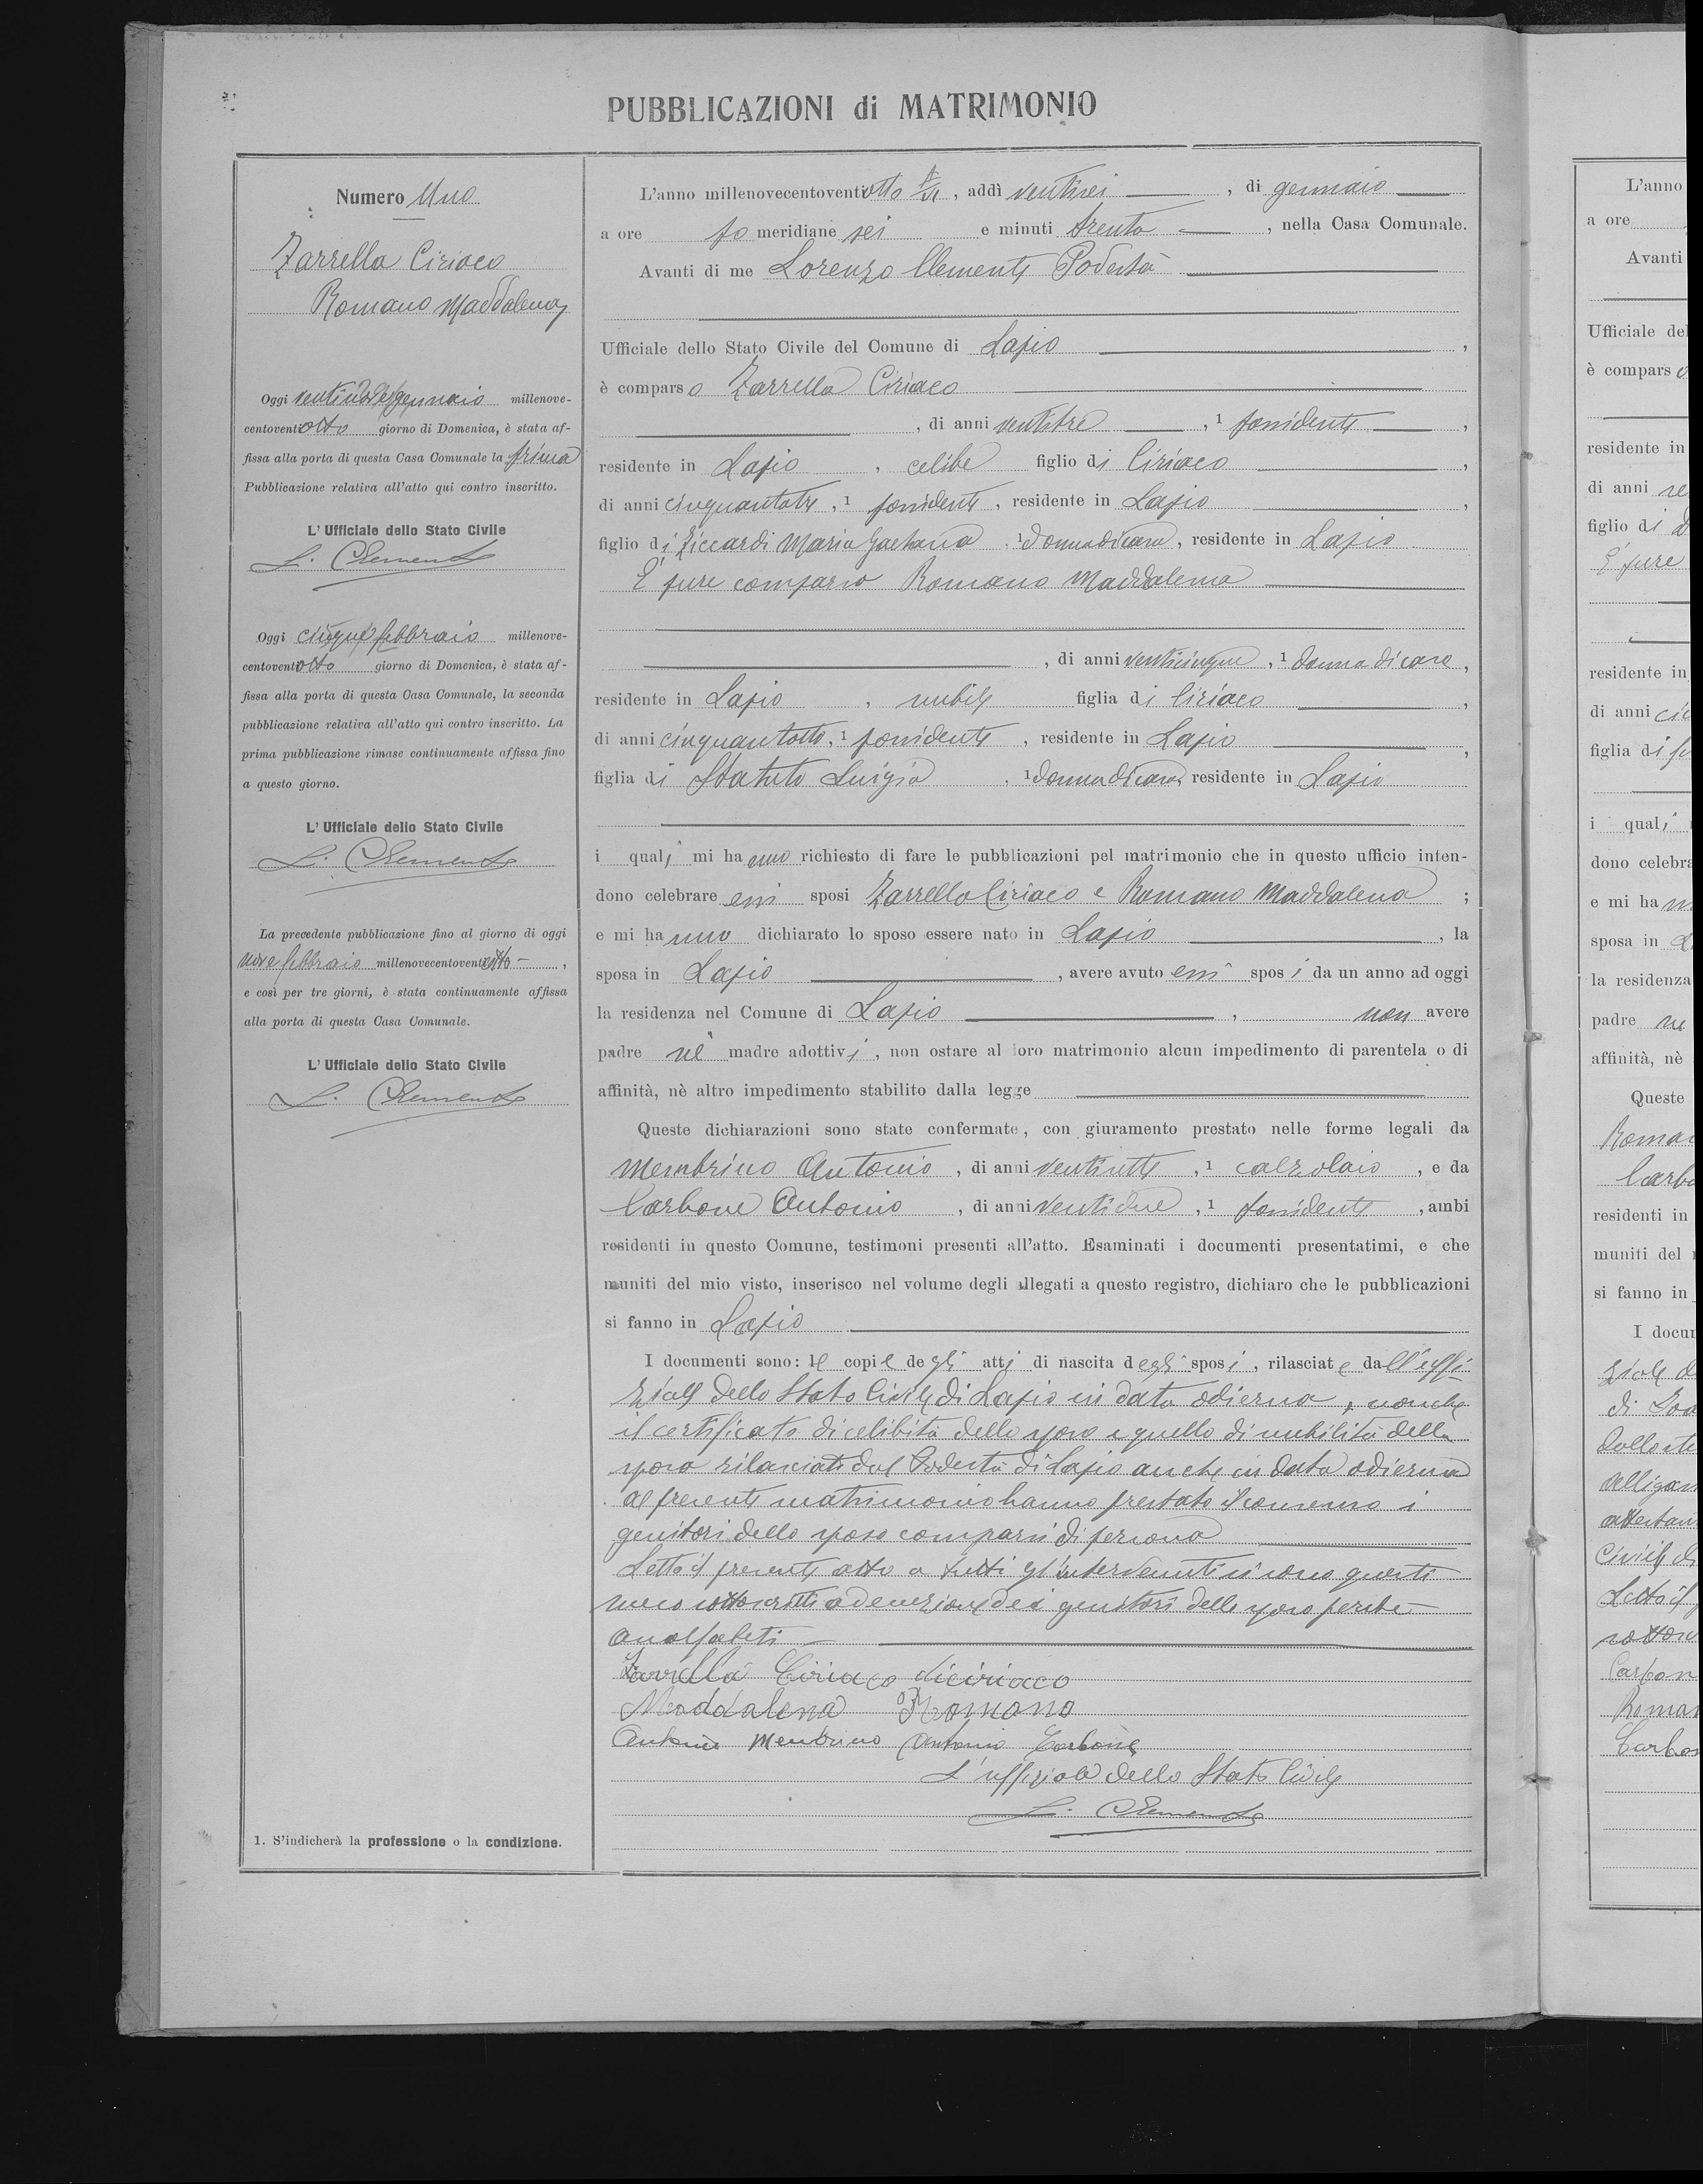 PUBBLICAZIONI di MATRIMONIO
Numero Uno
Zarrella Ciriaco
Romano Maddalena
Oggi ventinove gennaio millenove-
centoventiotto giorno di Domenica, è stata af-
fissa alla porta di questa Casa Comunale la prima
Pubblicazione relativa all'atto qui contro inscritto.
L'Ufficiale dello Stato Civile
L. Clemente
Oggi cinque febbraio millenove-
centoventiotto giorno di Domenica, è stata af-
fissa alla porta di questa Casa Comunale, la seconda
pubblicazione relativa all'atto qui contro inscritto. La
prima pubblicazione rimase continuamente affissa fino
a questo giorno.
L'Ufficiale dello Stato Civile
L. Clemente
La precedente pubblicazione fino al giorno di oggi
nove febbraio millenovecentoventiotto,
e così per tre giorni, è stata continuamente affissa
alla porta di questa Casa Comunale.
L'Ufficiale dello Stato Civile
L. Clemente
1. S'indicherà la professione o la condizione.
L'anno millenovecentoventiotto, addì ventisei, di gennaio
a ore po meridiane sei e minuti trenta, nella Casa Comunale.
Avanti di me Lorenzo Clemente Podestà
Ufficiale dello Stato Civile del Comune di Lapio,
è comparso Zarrella Ciriaco
, di anni ventitre, 1 possidente,
residente in Lapio, celibe figlio di Ciriaco,
di anni cinquantatre, 1 possidente, residente in Lapio,
figlio di Ziccardi Maria Gaetana, 1 donna di casa, residente in Lapio
E' pure comparso Romano Maddalena
, di anni venticinque, 1 donna di casa,
residente in Lapio, nubile figlia di Ciriaco,
di anni cinquantotto, 1 possidente, residente in Lapio,
figlia di Statuto Luigia, 1 donna di casa, residente in Lapio
i quali mi hanno richiesto di fare le pubblicazioni pel matrimonio che in questo ufficio inten-
dono celebrare essi sposi Zarrella Ciriaco e Romano Maddalena;
e mi hanno dichiarato lo sposo essere nato in Lapio, la
sposa in Lapio, avere avuto essi sposi da un anno ad oggi
la residenza nel Comune di Lapio, non avere
padre nè madre adottivi, non ostare al loro matrimonio alcun impedimento di parentela o di
affinità, nè altro impedimento stabilito dalla legge
Queste dichiarazioni sono state confermate, con giuramento prestato nelle forme legali da
Membrino Antonio, di anni ventisette, 1 calzolaio, e da
Carbone Antonio, di anni ventidue, 1 possidente, ambi
residenti in questo Comune, testimoni presenti all'atto. Esaminati i documenti presentatimi, e che
muniti del mio visto, inserisco nel volume degli allegati a questo registro, dichiaro che le pubblicazioni
si fanno in Lapio
I documenti sono: le copie degli atti di nascita degli sposi, rilasciate dall'uffi-
ziale dello Stato Civile di Lapio in data odierna, nonche
il certificato di celibità dello sposo e quello di nubilità della
sposa rilasciati dal Podestà di Lapio anche in data odierna
al presente matrimonio hanno prestato il consenso i
genitori dello sposo comparsi di persona
Letto il presente atto a tutti gl'intervenuti si sono questi
meco sottoscritti ad eccezione dei genitori dello sposo perchè
analfabeti
Zarrella Ciriaco di Ciriaco
Maddalena Romano
Antonio Membrino Antonio Carbone
L'uffiziale dello Stato Civile
L. Clemente
L'anno
a ore
Avanti
Ufficiale del
è compars
residente in
di anni
figlio di
E' pure
residente in
di anni
figlia di
i quali
dono celebra
e mi ha
sposa in
la residenza
padre ne
affinità, nè
Queste
residenti in
muniti del
si fanno in
I docum